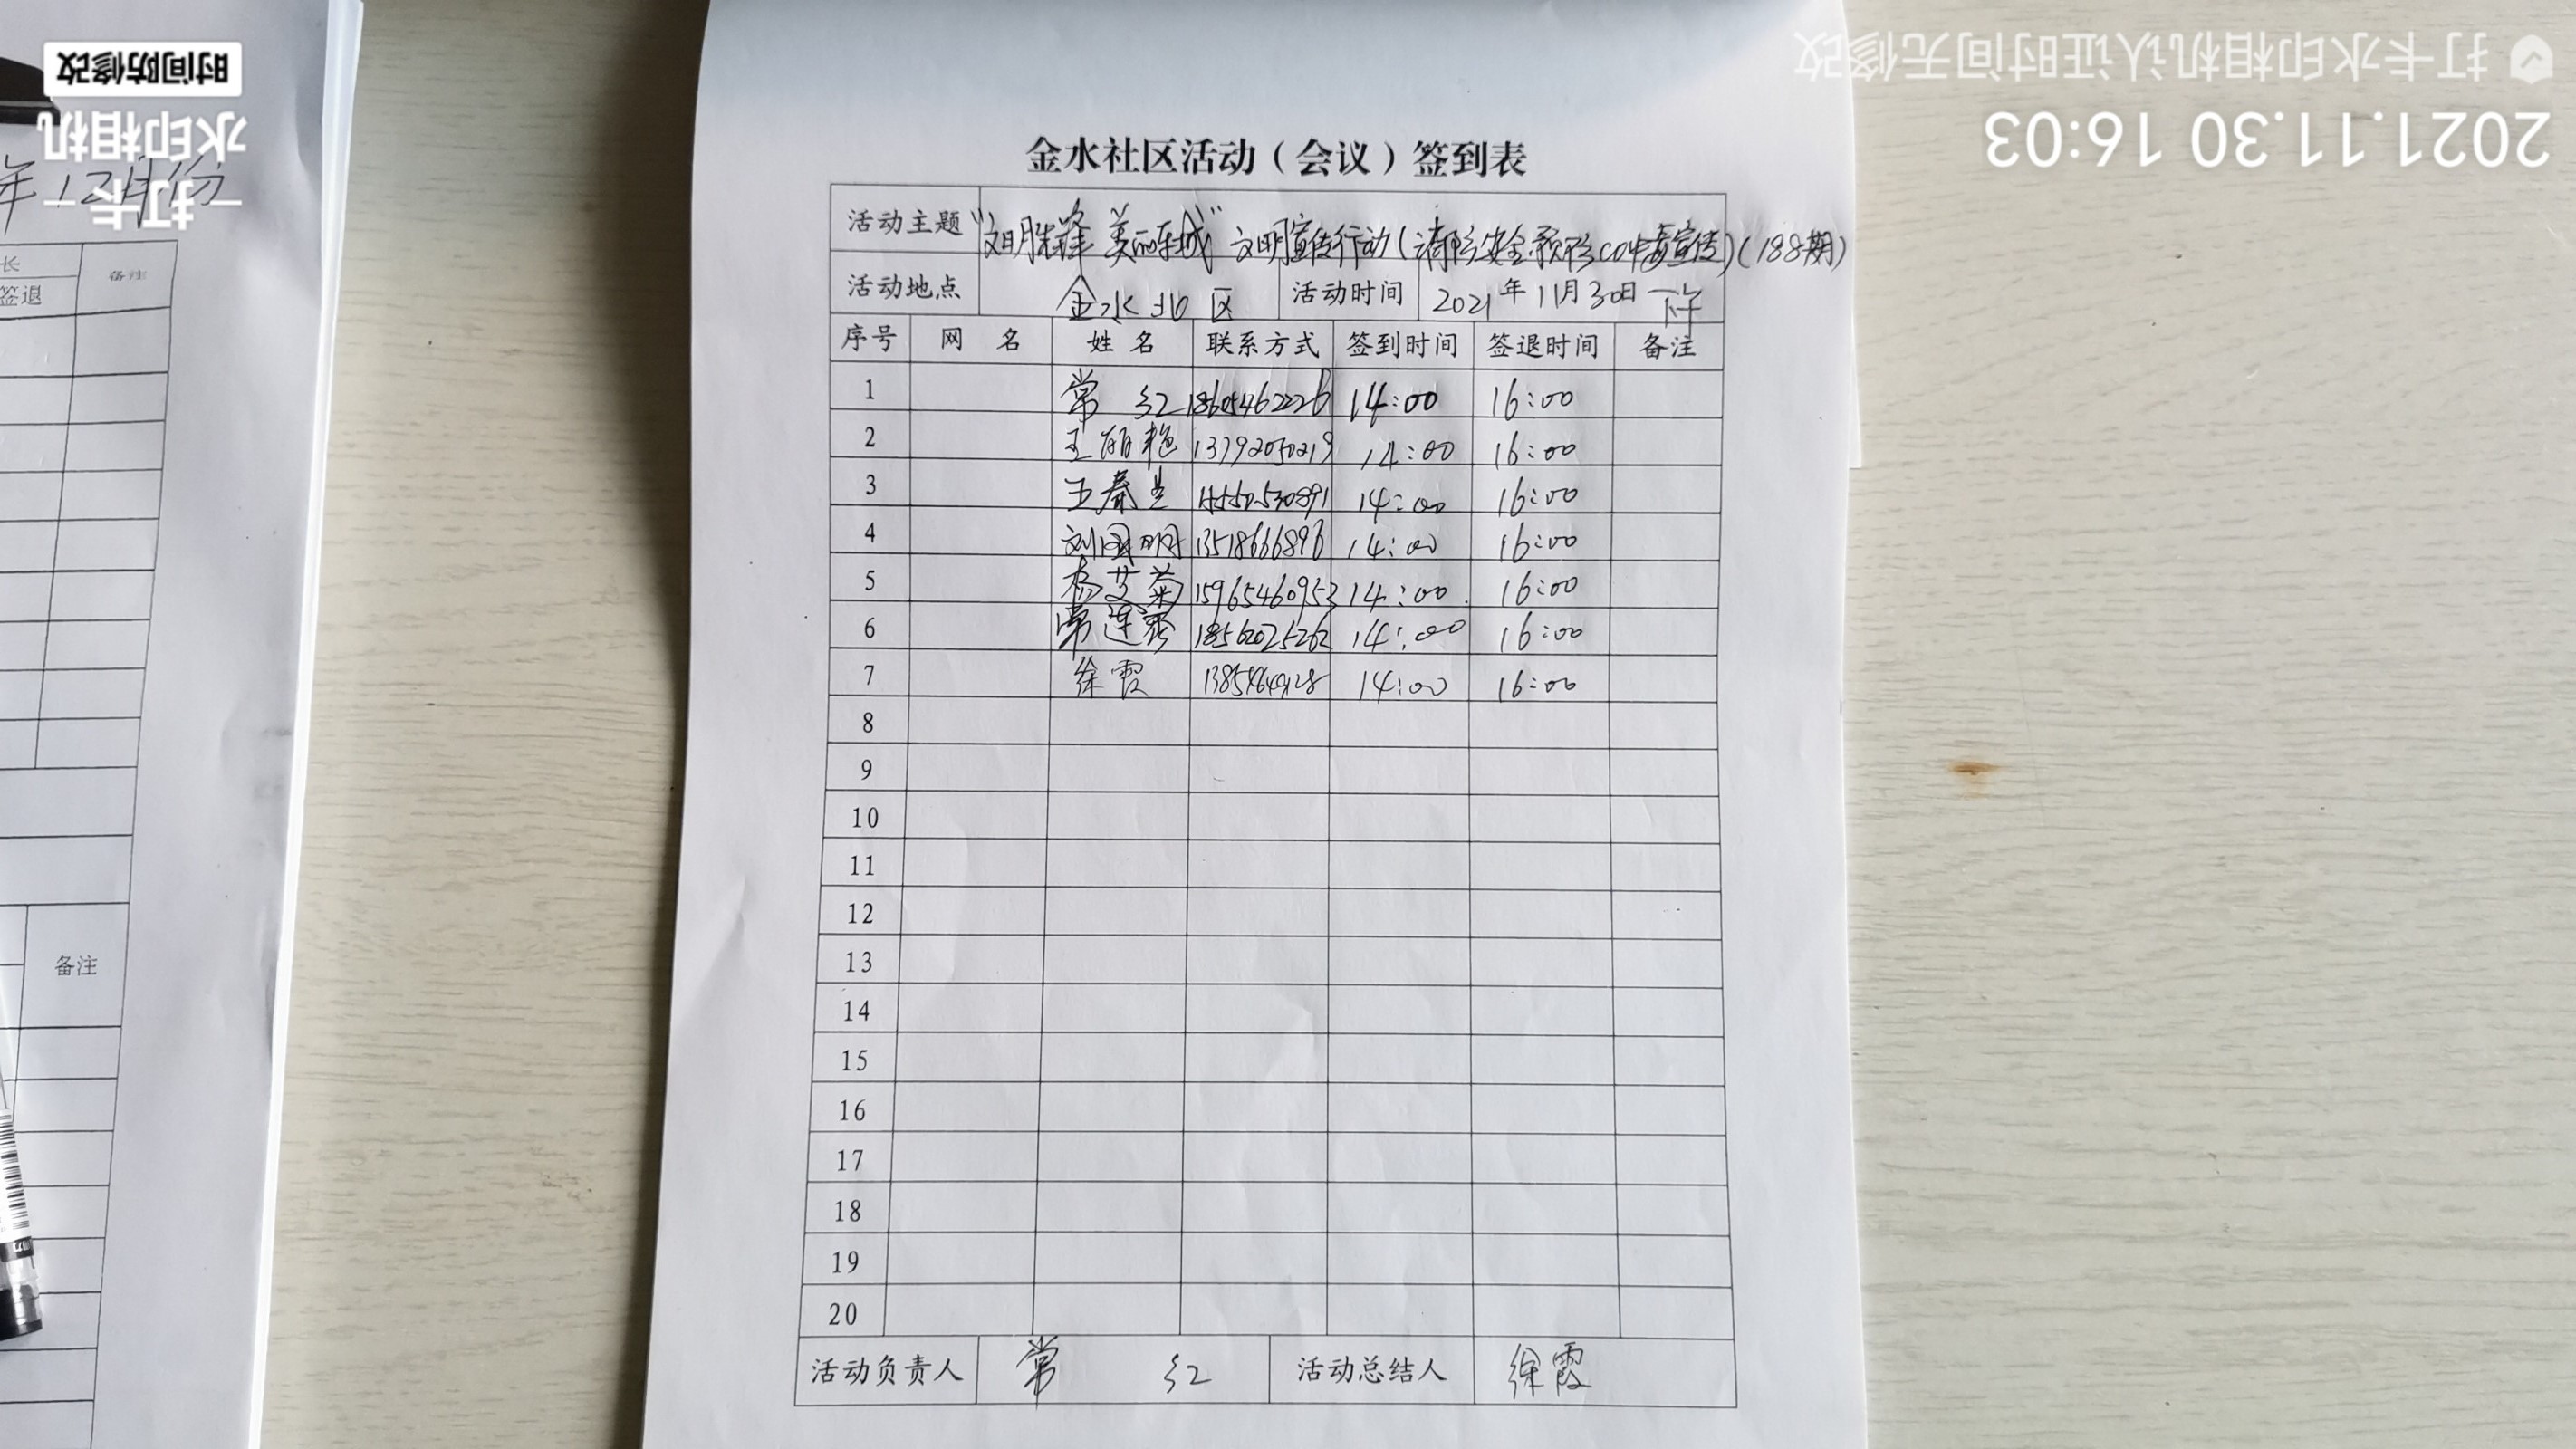 金水社区活动（会议）签到表
活动主题 "文明胜锋 美丽东城" 文明宣传行动(消防安全.预防CO中毒宣传)(188期)
活动地点 金水北区 活动时间 2021年11月30日 下午
序号 网 名 姓 名 联系方式 签到时间 签退时间 备注
1 常 红 18605462226 14:00 16:00
2 王丽艳 13792050219 14:00 16:00
3 王春兰 14:00 16:00
4 刘国明 13518666896 14:00 16:00
5 杨艾菊 15965460953 14:00 16:00
6 常连霞 18562025262 14:00 16:00
7 徐霞 14:00 16:00
8
9
10
11
12
13
14
15
16
17
18
19
20
活动负责人 常 红 活动总结人 徐霞
年12月份
长
备注
签退
备注
打卡水印相机认证时间无修改
2021.11.30 16:03
打卡
水印相机
时间防修改